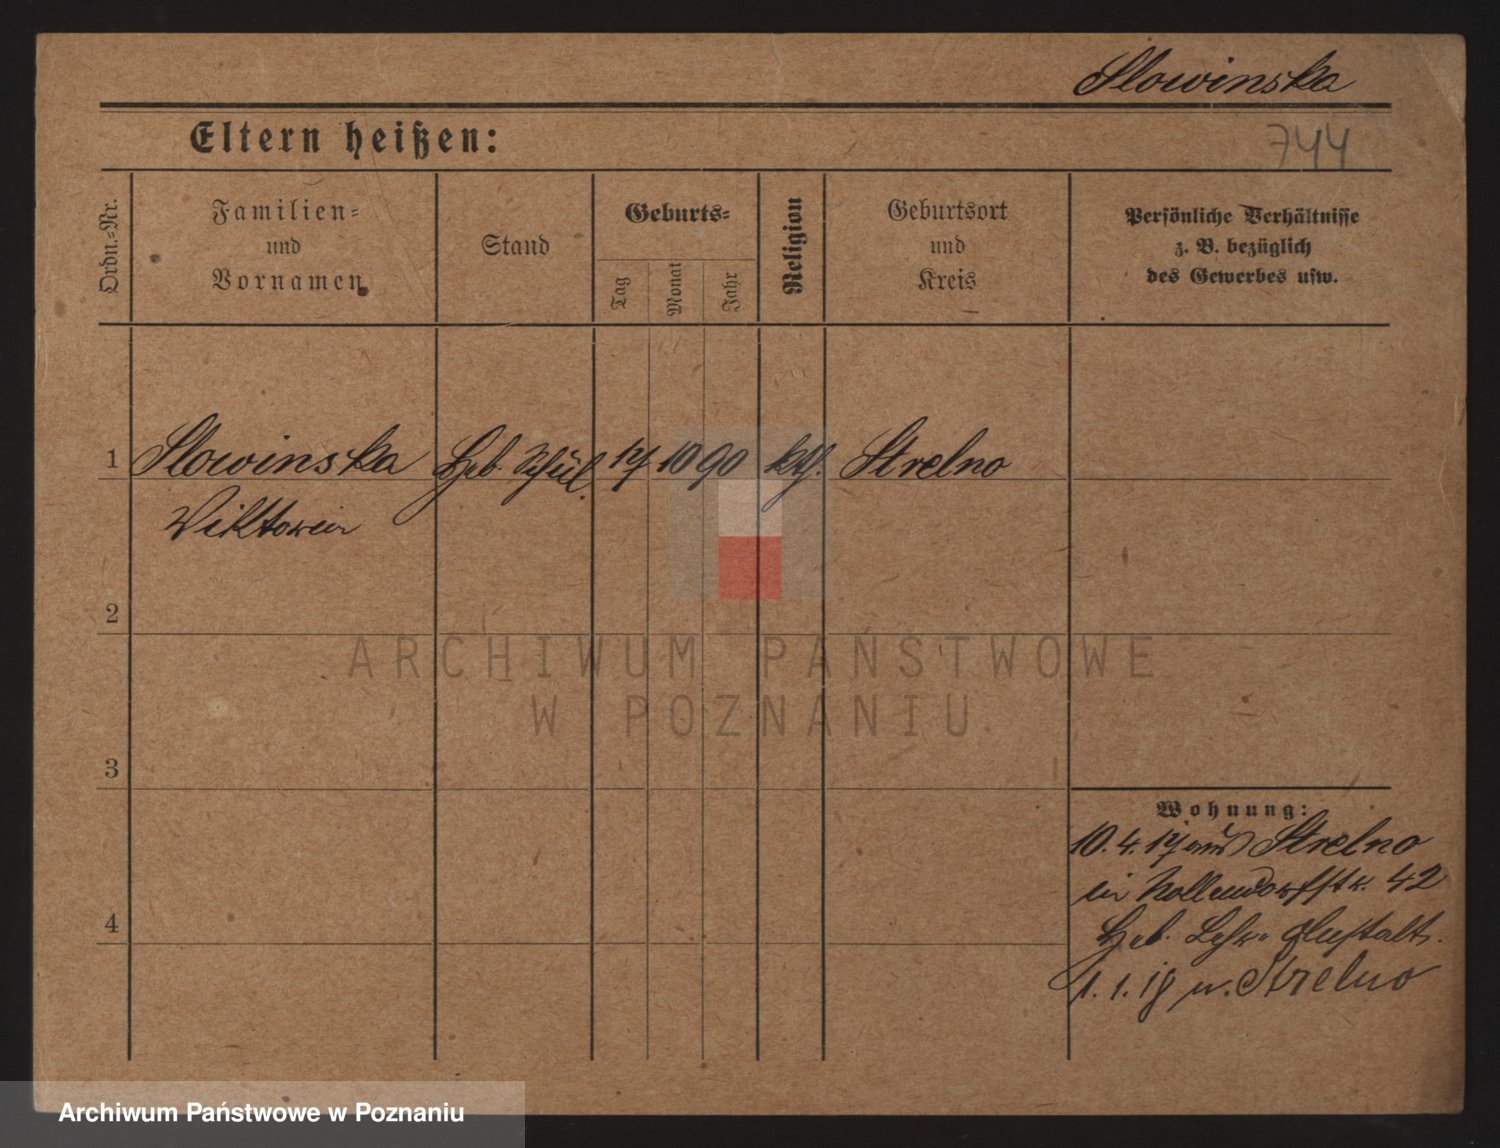 Slowinska
Eltern heißen:
744
Ordn.-Nr.
Familien-
und
Vornamen
Stand
Geburts-
Tag
Monat
Jahr
Religion
Geburtsort
und
Kreis
Persönliche Verhältnisse
z. B. bezüglich
des Gewerbes usw.
1
Slowinska
Heb. Schül.
17
10
90
kth.
Strelno
Viktoria
2
ARCHIWUM PAŃSTWOWE
W POZNANIU
3
Wohnung:
10. 4. 17 aus Strelno
in Nollendorfstr. 42
Heb. Lehr- Anstalt.
1. 1. 18 n. Strelno
4
Archiwum Państwowe w Poznaniu